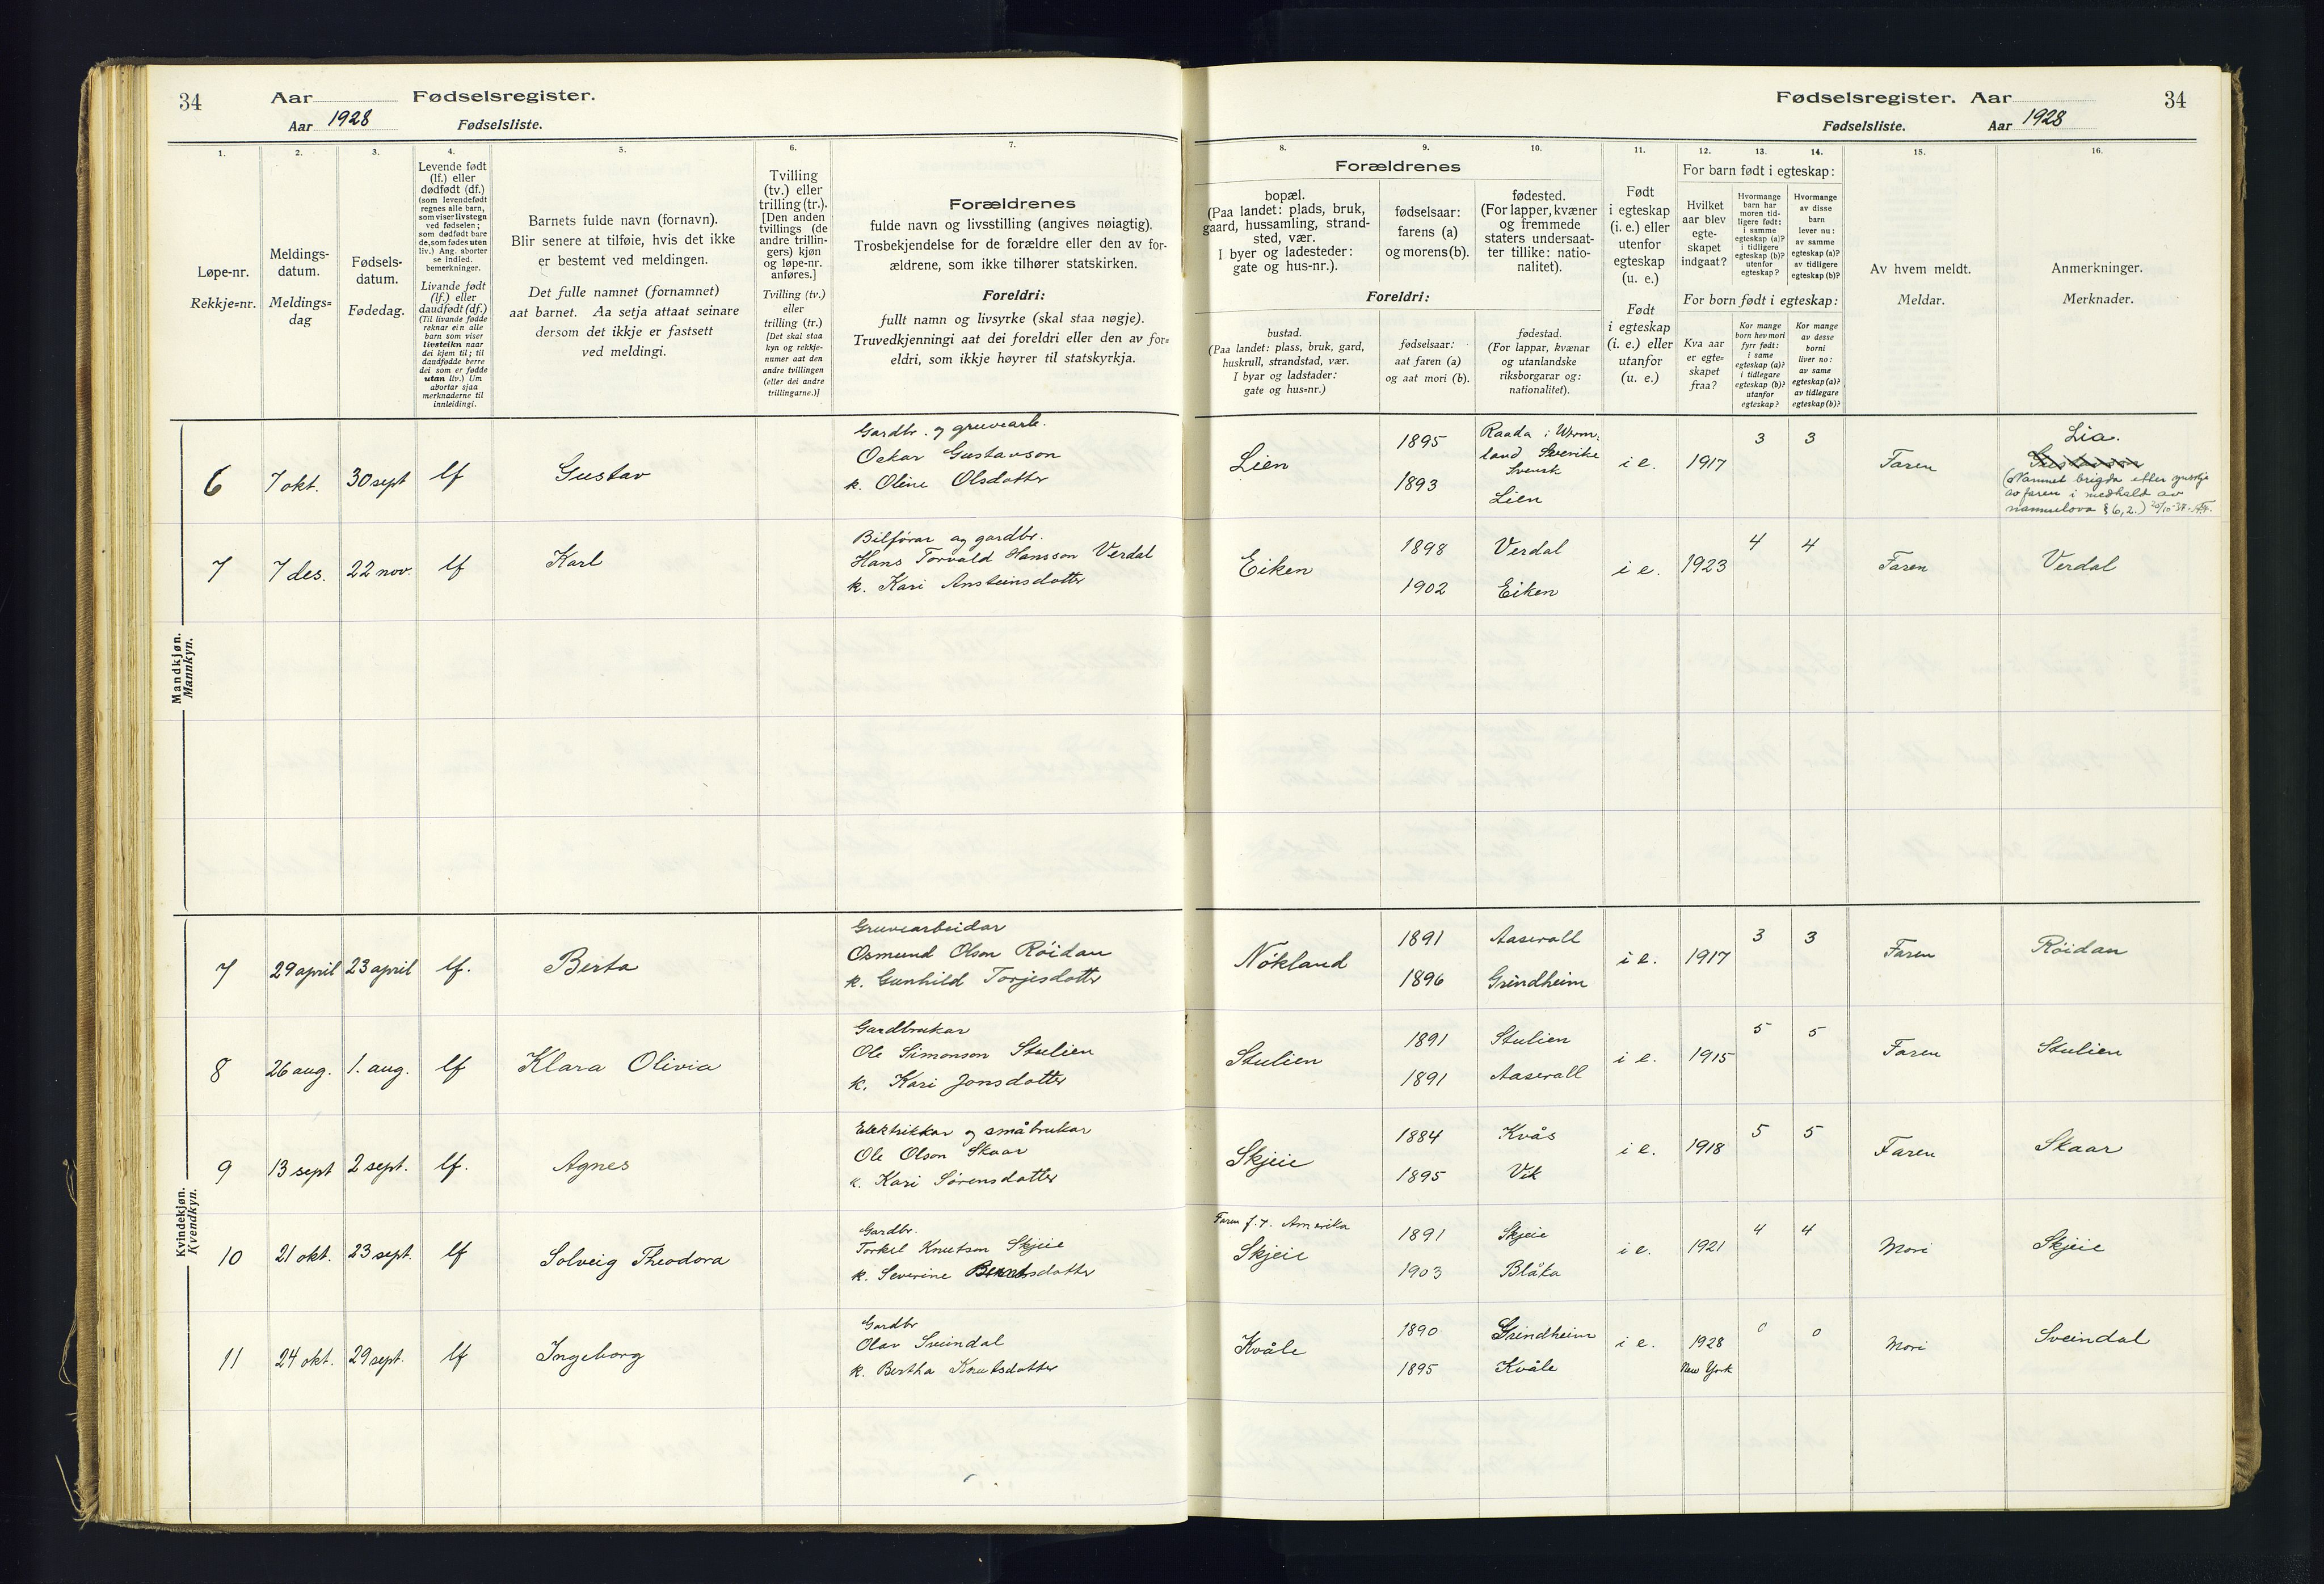 34
Aar
Fødselsregister.
Aar 1928
Fødselsliste.
1.
Løpe-nr.
Rekkje=nr.
2.
Meldings-
datum.
Meldings=
dag
3.
Fødsels-
datum.
Fødedag.
4.
Levende født
(lf.) eller
dødfødt (df.)
(som levendefødt
regnes alle barn,
som viser livstegn
ved fødselen;
som dødfødt bare
de, som fødes uten
liv.) Ang. aborter
se indled.
bemerkninger.
Livande født
(lf.) eller
daudfødt (df.)
(Til livande fødde
reknar ein alle
barn som viser
livsteikn naar
dei kjem til; til
daudfødde berre
dei som er fødde
utan liv.) Um
abortar sjaa
merknaderne til
innleidingi.
5.
Barnets fulde navn (fornavn).
Blir senere at tilføie, hvis det ikke
er bestemt ved meldingen.
Det fulle namnet (fornamnet)
aat barnet. Aa setja attaat seinare
dersom det ikkje er fastsett
ved meldingi.
6.
Tvilling
(tv.) eller
trilling (tr.).
[Den anden
tvillings (de
andre trillin-
gers) kjøn
og løpe-nr.
anføres.]
Tvilling (tv.)
eller
trilling (tr.)
[Det skal staa
kyn og rekkje-
numer aat den
andre tvillingen
(eller dei andre
trillingarne.)]
7.
Forældrenes
fulde navn og livsstilling (angives nøiagtig).
Trosbekjendelse for de forældre eller den av for-
ældrene, som ikke tilhører statskirken.
Foreldri:
fullt namn og livsyrke (skal staa nøgje).
Truvedkjenningi aat dei foreldri eller den av for=
eldri, som ikkje høyrer til statskyrkja.
Mandkjøn.
Mannkyn.
6 7 okt. 30 sept lf Gustav
Gardbr. og gruvearb.
Oskar Gustavson
k. Oline Olsdotter
7 7 des. 22 nov. lf Karl
Bilførar og gardbr.
Hans Torvald Hansson Verdal
k. Kari Ansteinsdotter
Kvindekjøn.
Kvendkyn.
7 29 april 23 april lf. Berta
Gruvearbeidar
Osmund Olson Röidan
k. Gunhild Torjesdotter
8 26 aug. 1. aug. lf Klara Olivia
Gardbrukar
Ole Simonson Stulien
k. Kari Jonsdotter
9 13 sept 2 sept. lf. Agnes
Elektrikkar og småbrukar
Ole Olson Skaar
k. Kari Sörensdotter
10 21 okt. 23 sept. lf Solveig Theodora
Gardbr.
Torkel Knutson Skjeie
k. Severine Berntsdotter
11 24 okt. 29 sept. lf Ingeborg
Gardbr
Olav Sveindal
k. Bertha Knutsdotter
Fødselsregister. Aar
34
Fødselsliste.
Aar 1928
8.
Forældrenes
bopæl.
(Paa landet: plads, bruk,
gaard, hussamling, strand-
sted, vær.
I byer og ladesteder:
gate og hus-nr.).
Foreldri:
bustad.
(Paa landet: plass, bruk, gard,
huskrull, strandstad, vær.
I byar og ladstader:
gate og hus=nr.)
9.
fødselsaar:
farens (a)
og morens (b).
fødselsaar:
aat faren (a)
og aat mori (b).
10.
fødested.
(For lapper, kvæner
og fremmede
staters undersaat-
ter tillike: natio-
nalitet).
fødestad.
(For lappar, kvænar
og utanlandske
riksborgarar og:
nationalitet).
11.
Født
i egteskap
(i. e.) eller
utenfor
egteskap
(u. e.)
Født
i egteskap
(i. e.) eller
utanfor
(u. e.)
12. 13. 14.
For barn født i egteskap:
Hvilket
aar blev
egte-
skapet
indgaat?
Hvormange
barn har
moren tid-
ligere født:
i samme
egteskap (a)?
i tidligere
egteskap (b)?
utenfor
egteskap?
Hvormange
av disse
barn
lever nu:
av samme
egteskap (a)?
av tidligere
egteskap (b)?
For born født i egteskap:
Kva aar
er egte=
skapet
fraa?
Kor mange
born hev mori
fyrr født:
i same
egteskap (a)?
i tidlegare
egteskap (b)?
utanfor
egteskap?
Kor mange
av desse
borni
liver no:
av same
egteskap (a)?
av tidlegare
egteskap (b)?
15.
Av hvem meldt.
Meldar.
16.
Anmerkninger.
Merknader.
Lien
1895
1893
Raada i Werm-
land Sverike
Svensk
Lien
i e. 1917 3 3 Faren
Lia.
(Namnet brigda etter ynskje
av faren i medhald av
namnelova § 6, 2.)
Eiken
1898 Verdal
1902 Eiken
i e. 1923 4 4 Faren Verdal
Nökland
1891 Aaserall
1896 Grindheim
i e. 1917 3 3 Faren Röidan
Stulien
1891 Stulien
1891 Aaserall
i e. 1915 5 5 Faren Stulien
Skjeie
1884 Kvås
1895 Vik
i e. 1918 5 5 Faren Skaar
Faren f. t. Amerika
Skjeie
1891 Skjeie
1903 Blåka
i e. 1921 4 4 Mori Skjeie
Kvåle
1890 Grindheim
1895 Kvåle
i e. 1928
New York
0 0 Mori Sveindal